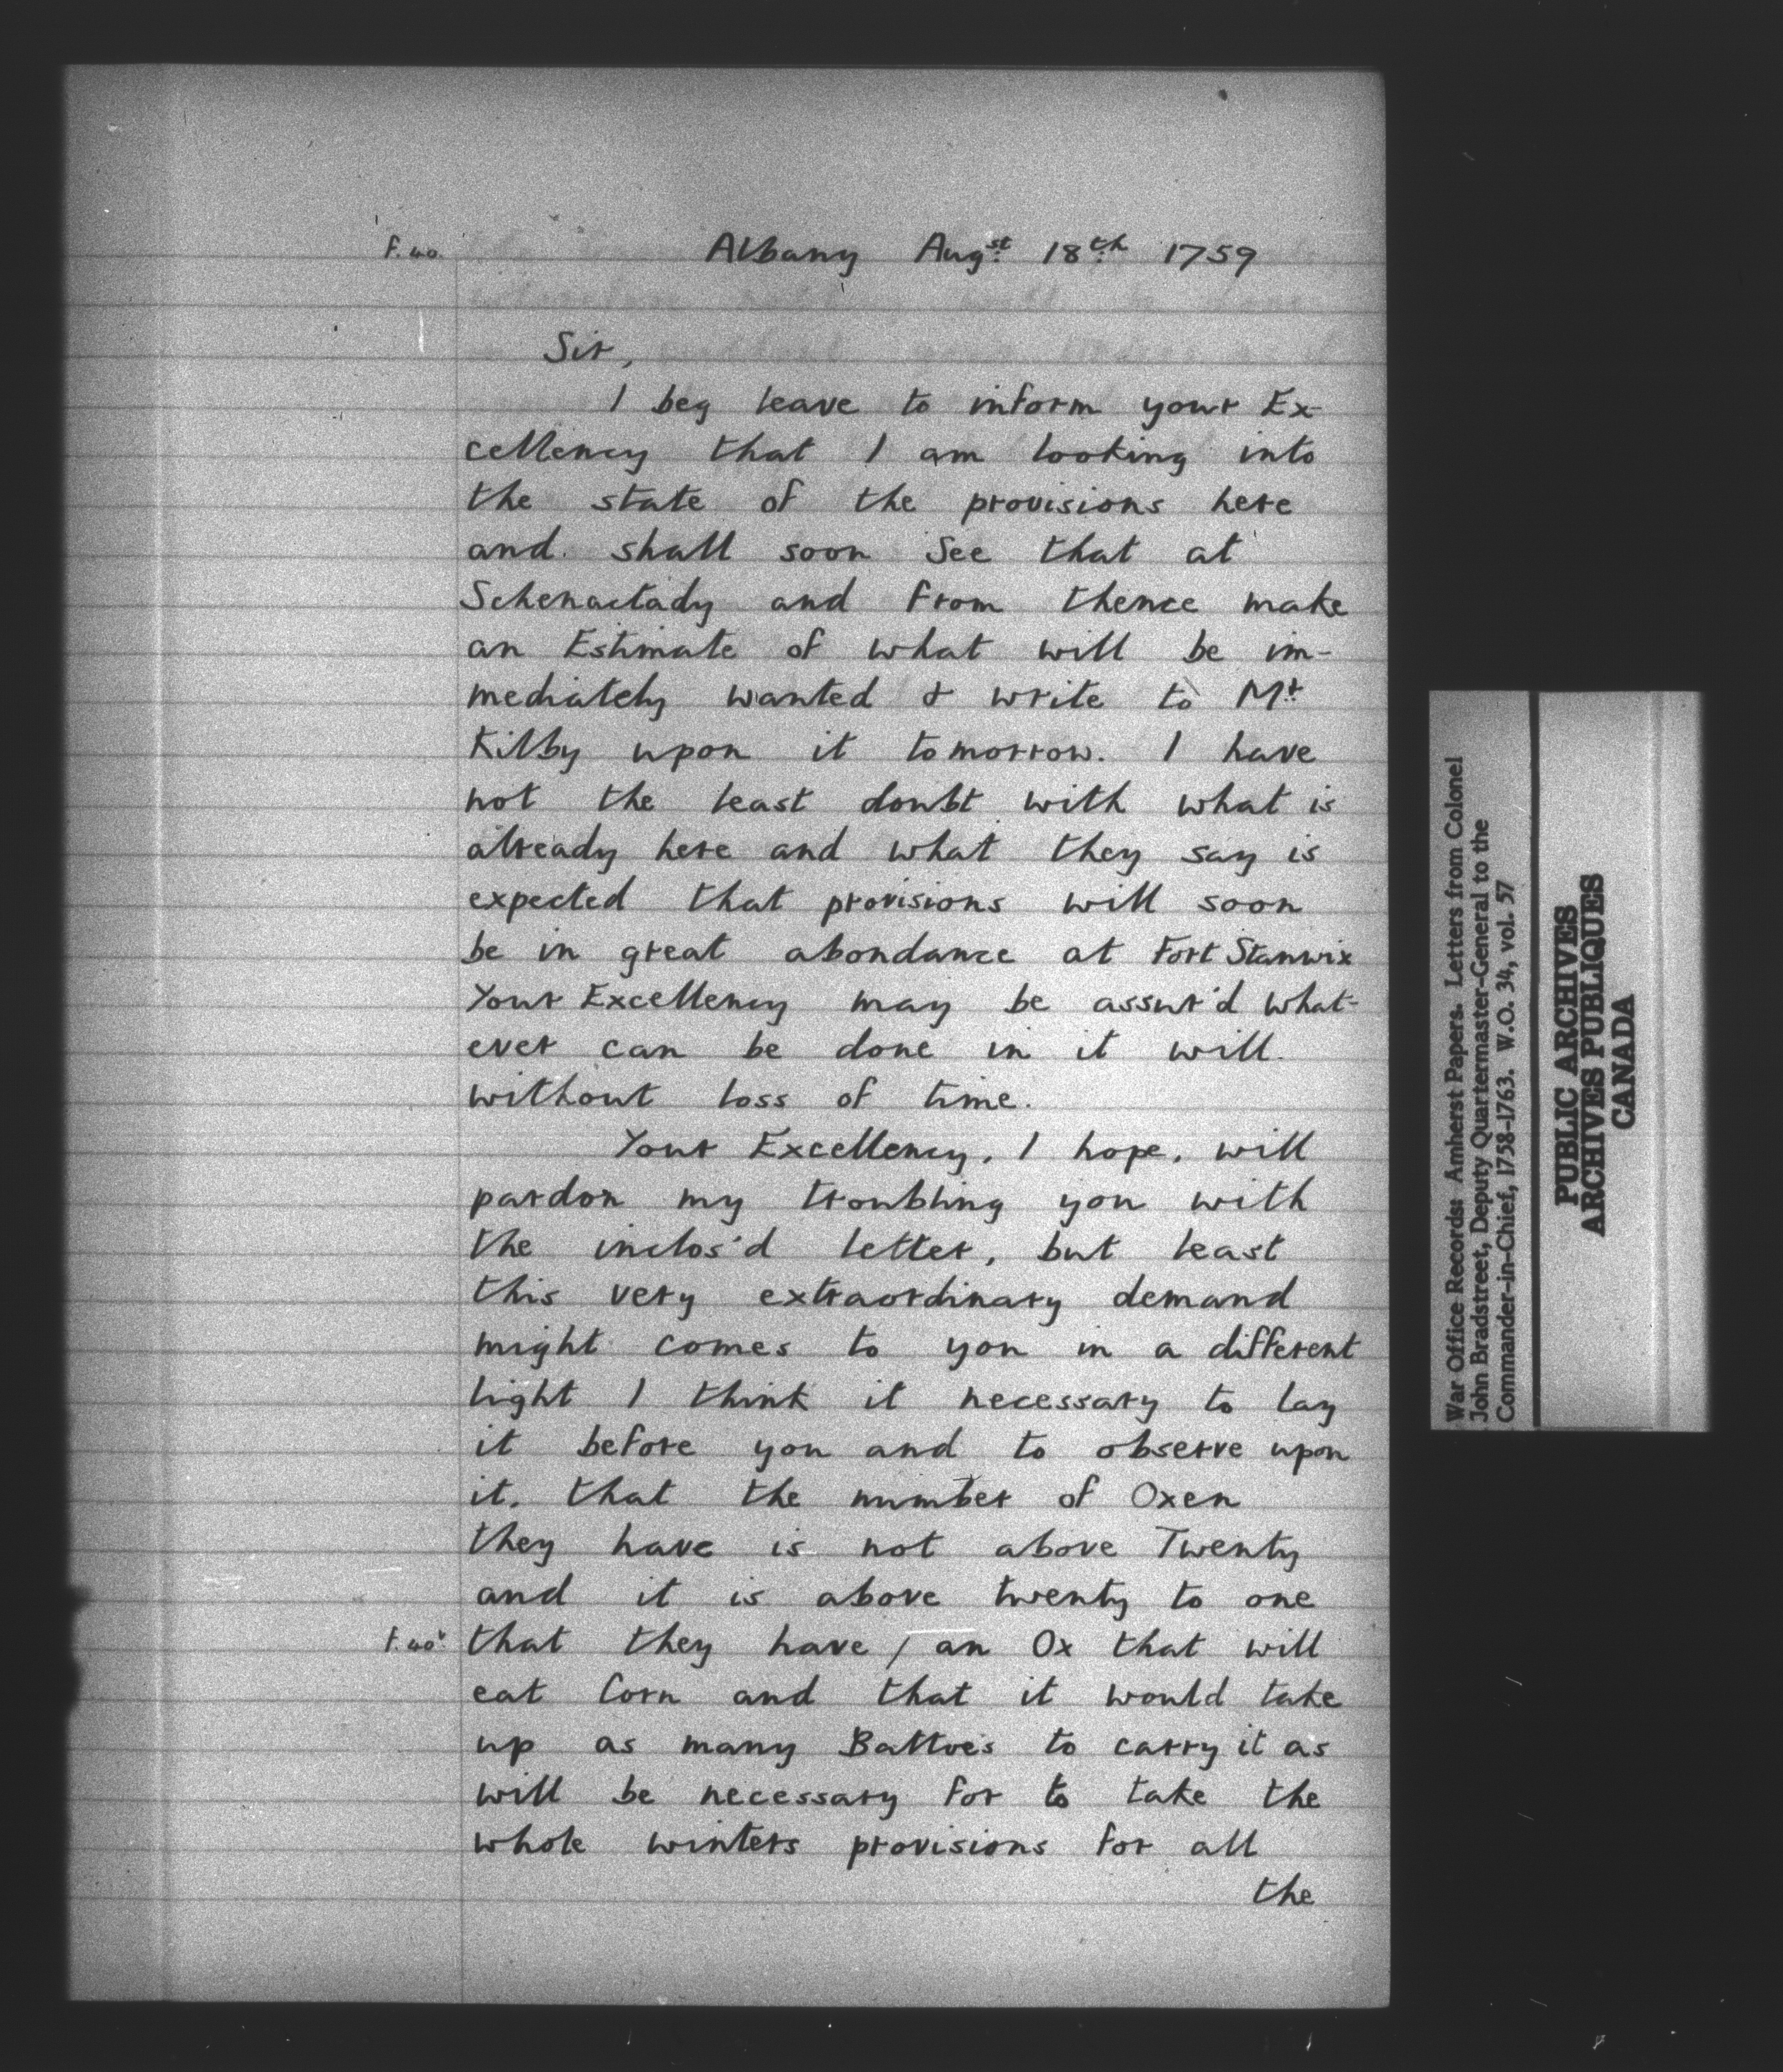 f. 40. Albany Augst 18th 1759
Sir,
I beg leave to inform your Ex-
cellency that I am looking into
the state of the provisions here
and shall soon see that at
Schenactady and from thence make
an Estimate of what will be im-
mediately wanted & write to Mr
Kilby upon it tomorrow. I have
not the least doubt with what is
already here and what they say is
expected that provisions will soon
be in great abondance at Fort Stanwix
Your Excellency may be assur'd what-
ever can be done in it will
without loss of time.
Your Excellency, I hope, will
pardon my troubling you with
the inclos'd letter, but least
this very extraordinary demand
might comes to you in a different
light I think it necessary to lay
it before you and to observe upon
it, that the number of Oxen
they have is not above Twenty
and it is above twenty to one
f. 40v that they have / an Ox that will
eat Corn and that it would take
up as many Battoes to carry it as
will be necessary for to take the
whole winters provisions for all
the
War Office Records: Amherst Papers. Letters from Colonel
John Bradstreet, Deputy Quartermaster-General to the
Commander-in-Chief, 1758-1763. W.O. 34, vol. 57
PUBLIC ARCHIVES
ARCHIVES PUBLIQUES
CANADA